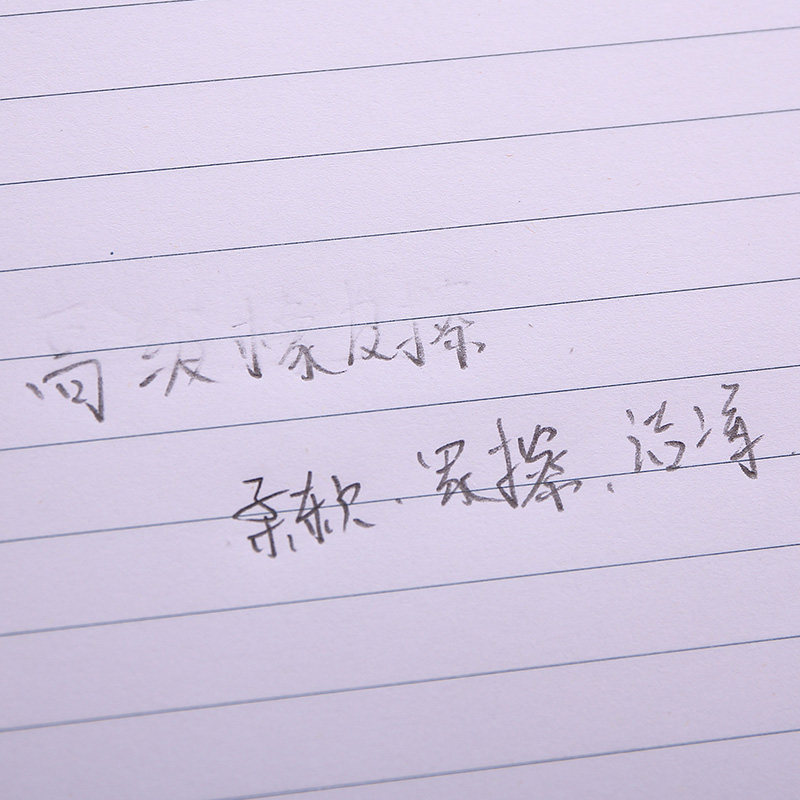 高级橡皮擦
柔软.易擦.洁净